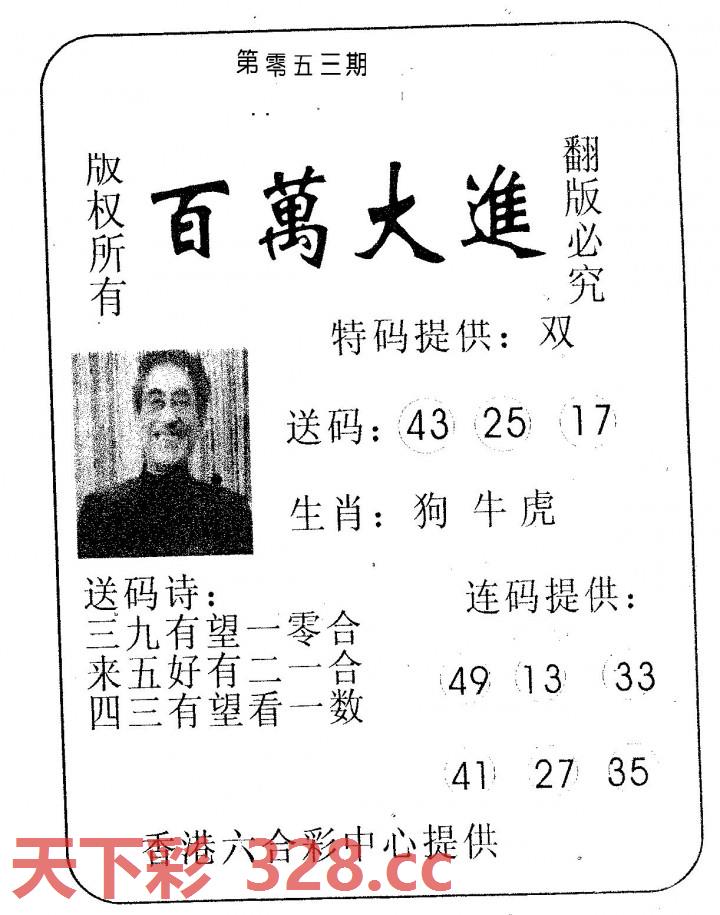 第零五三期
版权所有
百萬大進
翻版必究
特码提供：双
送码：43 25 17
生肖：狗牛虎
送码诗：
三九有望一零合
来五好有二一合
四三有望看一数
连码提供：
49 13 33
41 27 35
香港六合彩中心提供
天下彩 328.cc